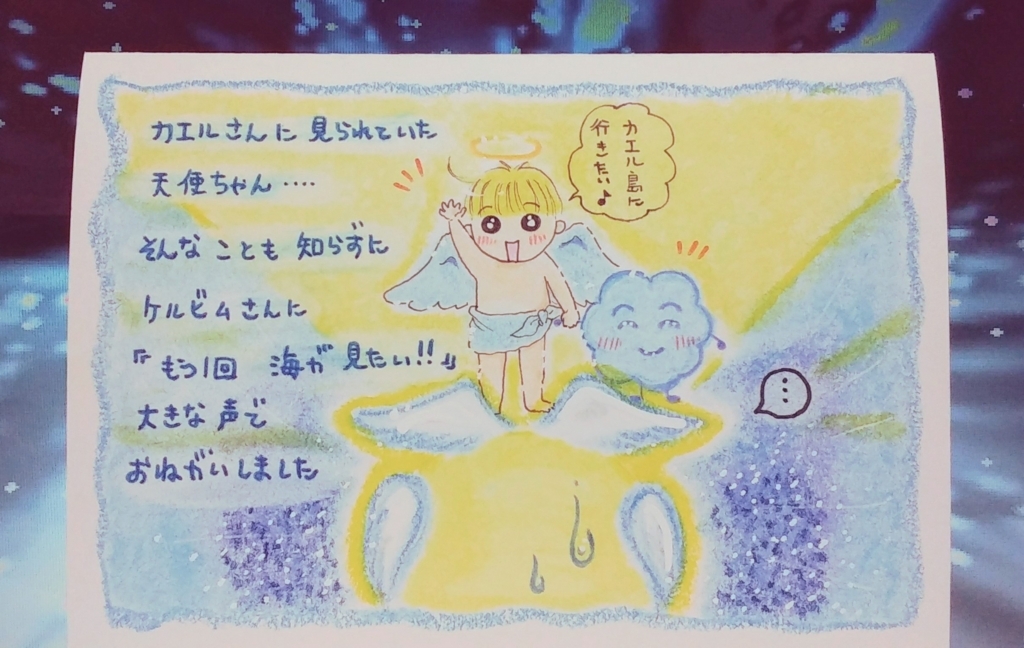 カエルさんに見られていた
天使ちゃん‥‥
そんなことも知らずに
ケルビムさんに
『もう1回 海が見たい!!』
大きな声で
おねがいしました
カエル島に
行きたい♪
…